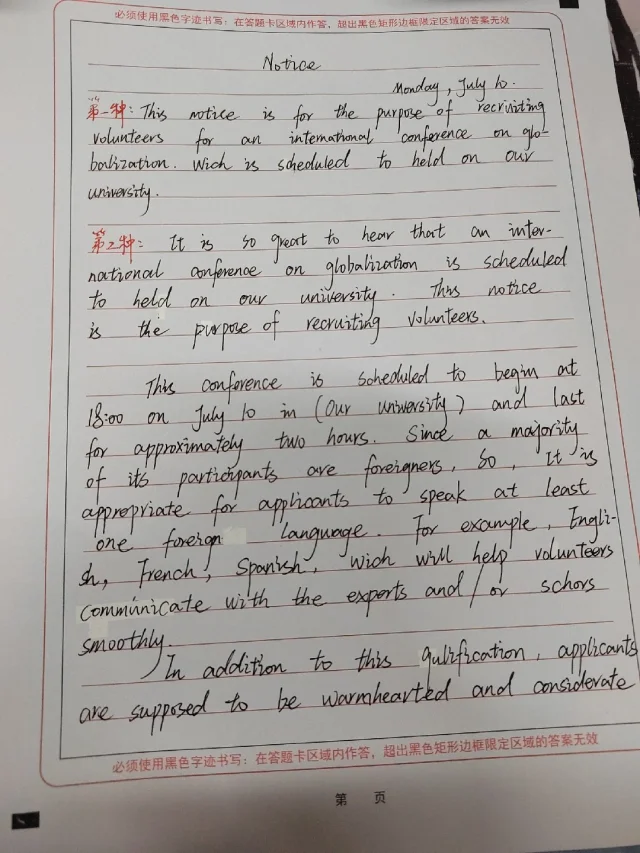 必须使用黑色字迹书写：在答题卡区域内作答，超出黑色矩形边框限定区域的答案无效
Notice
Monday, July 10.
第一种: This notice is for the purpose of recruiting
volunteers for an international conference on glo-
balization. Wich is scheduled to held on our
university.
第2种: It is so great to hear that an inter-
national conference on globalization is scheduled
to held on our university. This notice
is the purpose of recruiting volunteers.
This conference is scheduled to begin at
18:00 on July 10 in (Our university) and last
for approximately two hours. Since a majority
of its participants are foreigners, So, It is
appropriate for applicants to speak at least
one foreign language. For example, Engli-
sh, French, Spanish, wich will help volunteers
communicate with the experts and / or schors
smoothly.
In addition to this qulification, applicants
are supposed to be warmhearted and considerate
必须使用黑色字迹书写：在答题卡区域内作答，超出黑色矩形边框限定区域的答案无效
第 页